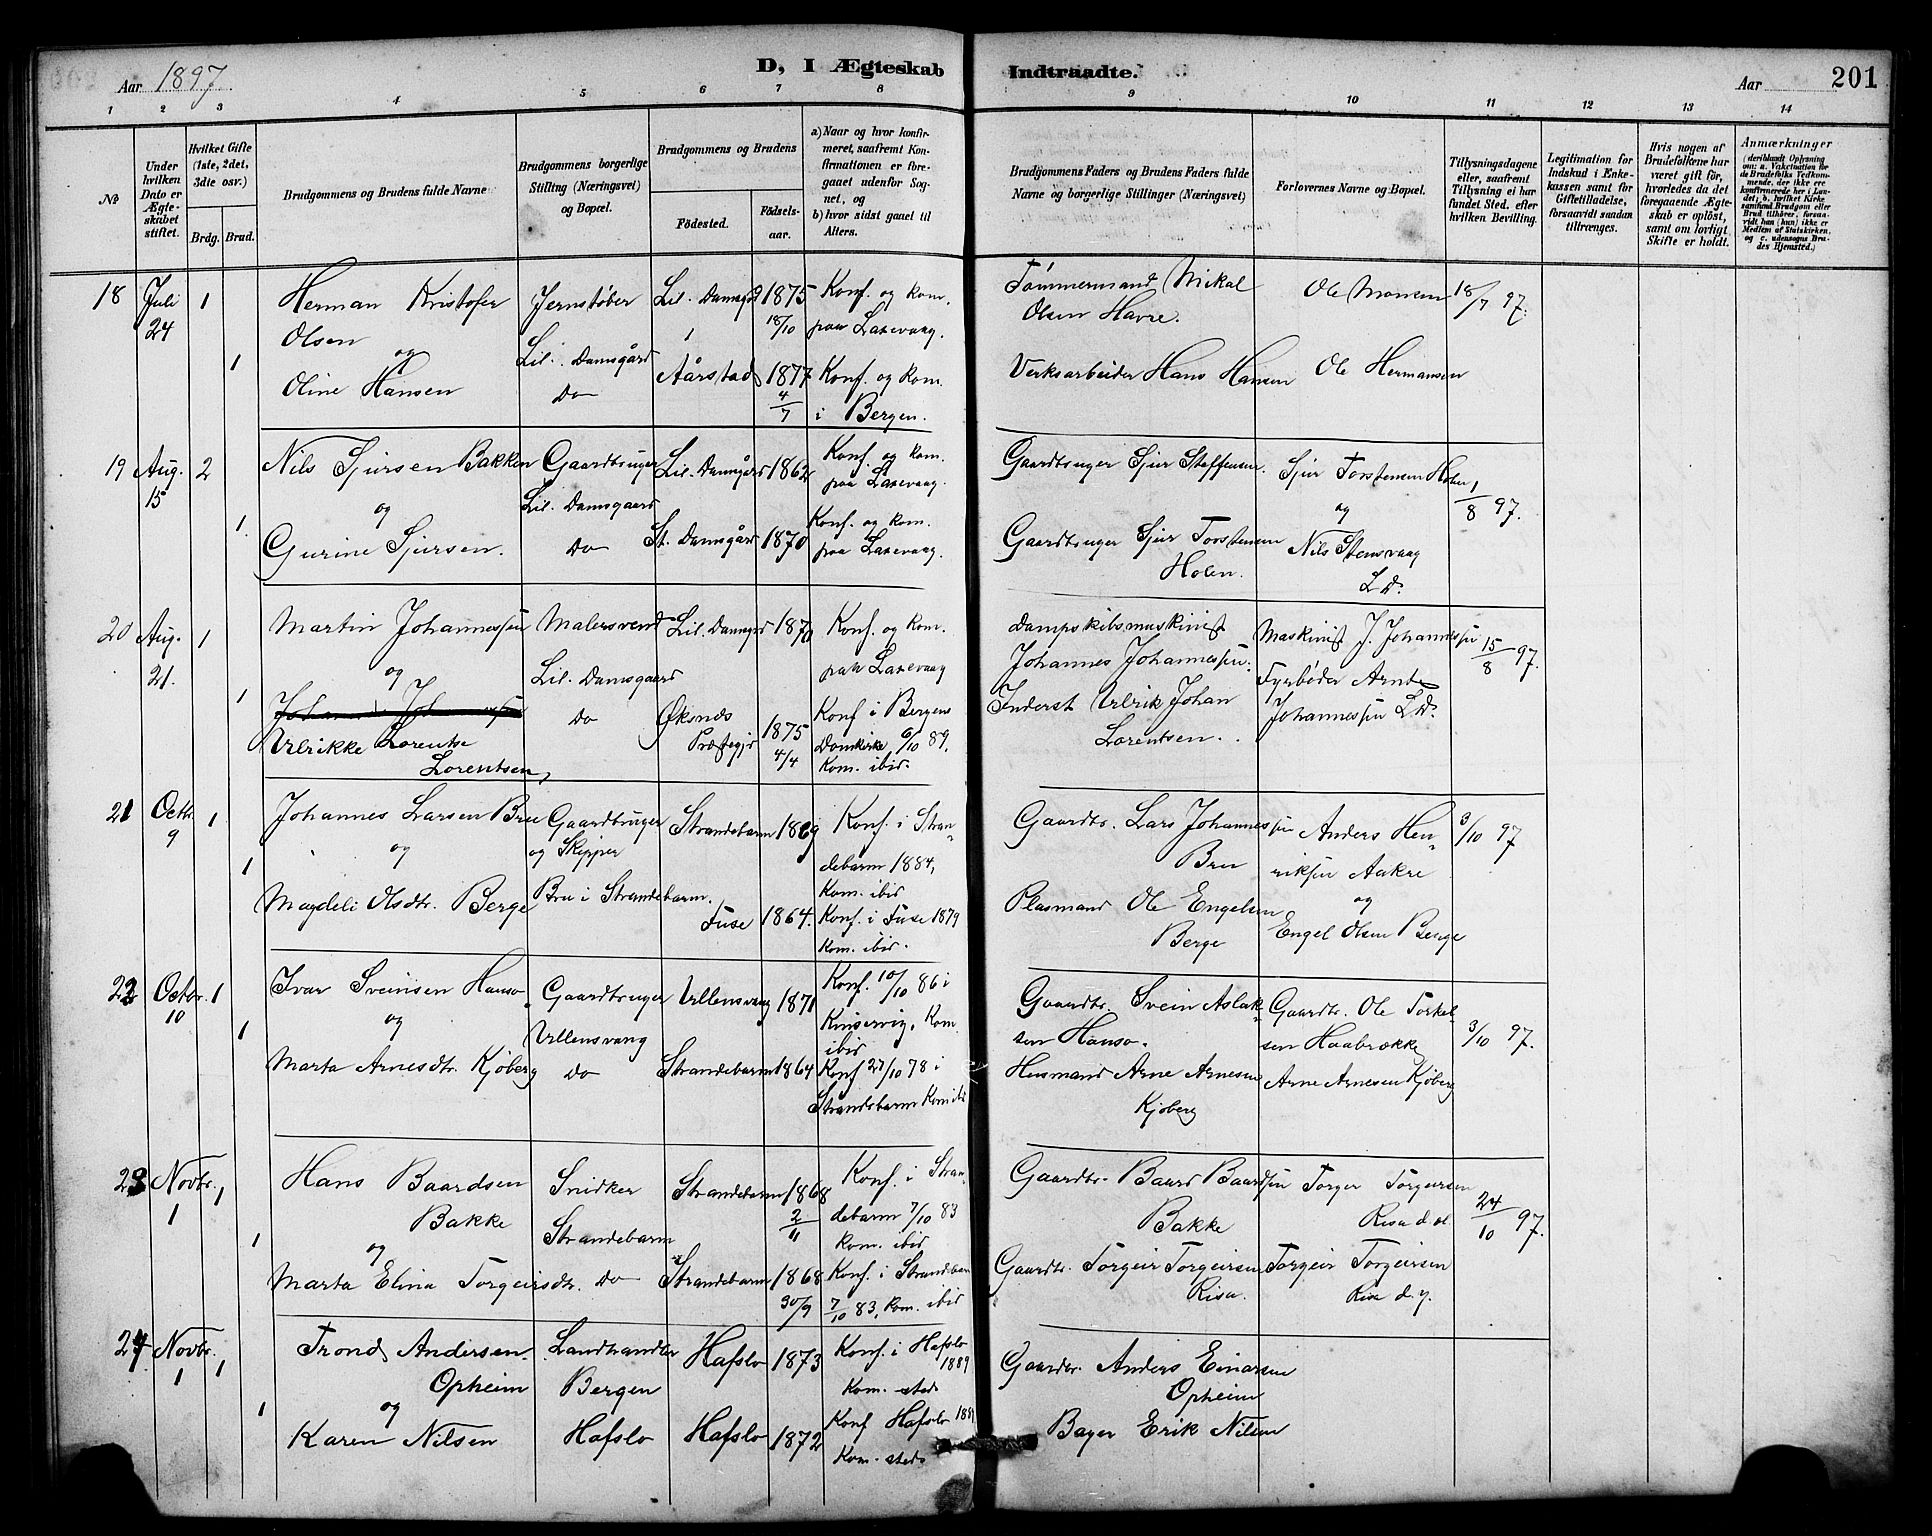 Aar 1897.
D, I Ægteskab
Indtraadte.
Aar
201
1 2 3 4 5 6 7 8 9 10 11 12 13 14
No
Under hvilken Dato er Ægteskabet stiftet.
Hvilket Gifte (1ste, 2det, 3die osv.)
Brdg. Brud.
Brudgommens og Brudens fulde Navne
Brudgommens borgerlige Stilling (Næringsvei) og Bopæl.
Brudgommens og Brudens
Fødested.
Fødselsaar.
a) Naar og hvor konfirmeret, saafremt Konfirmationen er foregaaet udenfor Sognet, og
b) hvor sidst gaaet til Alters.
Brudgommens Faders og Brudens Faders fulde Navne og borgerlige Stillinger (Næringsvei)
Forlovernes Navne og Bopæl.
Tillysningsdagene eller, saafremt Tillysning ei har fundet Sted, efter hvilken Bevilling.
Legitimation for Indskud i Enkekassen samt for Giftetilladelse, forsaavidt saadan tiltrænges.
Hvis nogen af Brudefolkene har været gift før, hvorledes da det foregaaende Ægteskab er opløst, samt om lovligt Skifte er holdt.
Anmærkninger
(deriblandt Oplysning om: a. Vakcination for de Brudefolks Vedkommende, der ikke ere konfirmerede her i Landet; b. hvilket Kirkesamfund Brudgom eller Brud tilhører, forsaavidt han (hun) ikke er Medlem af Statskirken, og c. udensogns Brudes Hjemsted.)
18 Juli 24 1 Herman Kristofer Olsen Jernstøber Lil. Damsgård Lil. Damsgd 1875 18/10 Konf. og kom. paa Laxevaag. Tømmermand Mikal Olsen Havre. Ole Monsen 18/7 97.
og
1 Oline Hansen Do Aårstad 1877 4/7 Konf. og kom. i Bergen. Verksarbeider Hans Hansen Ole Hermansen
19 Aug. 15 2 Nils Sjursen Bakken Gaardbruger Lil. Damsgaard Lil. Damsgård 1862 Konf. og kom. paa Laxevaag. Gaardbruger Sjur Steffensen. Sjur Torstensen Holen 1/8 97.
og
1. Gurine Sjursen. Do St. Damsgård 1870 Konf. og kom. paa Laxevaag. Gaardbruger Sjur Torstensen Holen. og Nils Stensvaag Ld.
20 Aug. 21. 1 Martin Johannessen Malersvend Lil. Damsgaard Lil. Damsgd 1870 Konf. og kom. paa Laxevaag Dampskibsmaskinist Johannes Johannessen. Maskinist J. Johannessen 15/8 97.
og
1 Ulrikke Lorentse Lorentsen, Do Øksnds Præstegjd 1875 4/4 Konf i Bergens Domkirke 6/10 89. Kom. ibid. Inderst Ulrik Johan Lorentsen. Fyrbøder Arnt Johannessen Ld.
21 Octbr. 9 1 Johannes Larsen Bru Gaardbruger og Skipper Bru i Strandebarm. Strandebarm 1869 Konf. i Strandebarm 1884, Kom. ibid Gaardbr. Lars Johannessen Bru Anders Henriksen Aakre 3/10 97
og
1 Magdeli Olsdtr. Berge Fuse 1864. Konf. i Fuse 1879 Kom. ibid. Plasmand Ole Engelsen Berge og Engel Olsen Berge
22 Octbr. 10 1 Ivar Sveinsen Hauso Gaardbruger Ullensvang Ullensvang 1871 Konf. 10/10 86 i Kinservig, Kom. ibid Gaardbr. Svein Aslaksen Hauso. Gaardbr. Ole Torkelsen Haabrække 3/10 97.
og
1 Marta Arnesdtr. Kjøberg Do Strandebarm 1864 Konf 27/10 78 i Strandebarm Kom ibid Husmand Arne Arnesen Kjøberg Arne Arnesen Kjøberg
23 Novbr. 1 1 Hans Baardsen Bakke Snidker Strandebarm Strandebarm 1868 2/11 Konf. i Strandebarm 7/10 83 Kom. ibid Gaardbr. Baard Baardsen Bakke Torger Torgeirsen Risa d. æl. 24/10 97.
og
1 Marta Elina Torgeirsdtr. Do Strandebarm 1868 30/9 Konf. i Strandebarm 7/10 83, Kom. ibid Gaardbr. Torgeir Torgeirsen Risa. Torgeir Torgeirsen Risa d. y.
24 Novbr. 1 1 Trond Andersen Opheim Landhandler Bergen Hafslo 1873 Konf. i Hafslo 1889 Kom. steds Gaardbr. Anders Einarsen Opheim
og
1 Karen Nilsen Hafslo Hafslo 1872 Konf Hafslo Kom. steds Erik Nilsen